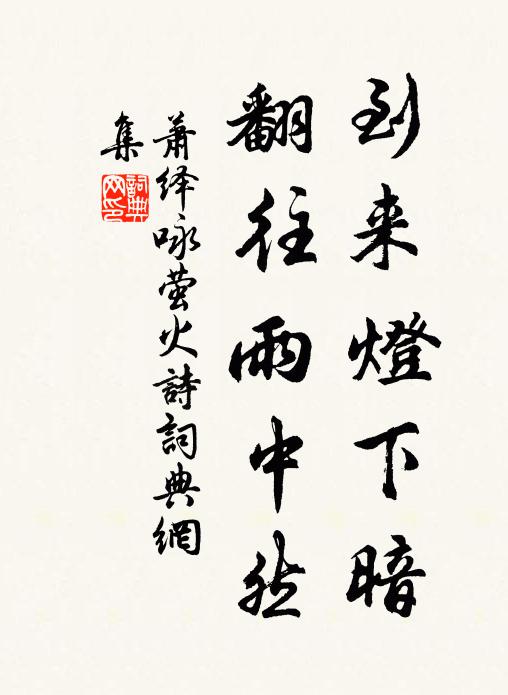 到来燈下暗
翻往雨中然
萧绎咏萤火詩詞典網
集
詞典
网印